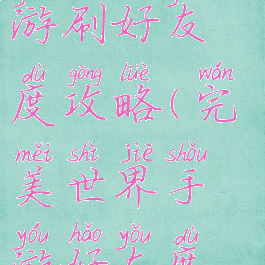 游刷好友
dù gōng lüè wán
度攻略(完
měi shì jiè shǒu
美世界手
yóu hǎo yǒu dù
游好友度